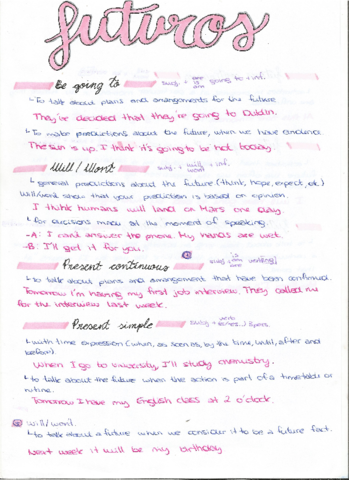 futuros
Be going to
subj. + are is am going to + inf.
↳ To talk about plans and arrangements for the future
They're decided that they're going to Dublin.
↳ To make predictions about the future, when we have evidence
The sun is up. I think it's going to be hot today.
Will / Won't
subj. + will won't + inf.
↳ general predictions about the future (think, hope, expect, etc.)
will/won't show that your prediction is based on opinion.
I think humans will land on Mars one day.
↳ for decisions made at the moment of speaking.
-A: I can't answer the phone. My hands are wet.
-B: I'll get it for you.
Present continuous
subj is am are
↳ to talk about plans and arrangement that have been confirmed.
Tomorrow I'm having my first job interview. They called me
for the interview last week.
Present simple
subj +
↳ with time expression (when, as soon as, by the time, until, after and
before).
When I go to university, I'll study chemistry.
↳ to talk about the future when the action is part of a timetable or
routine.
Tomorrow I have my English class at 2 o'clock.
will/won't.
↳ to talk about a future when we consider it to be a future fact.
Next week it will be my birthday.